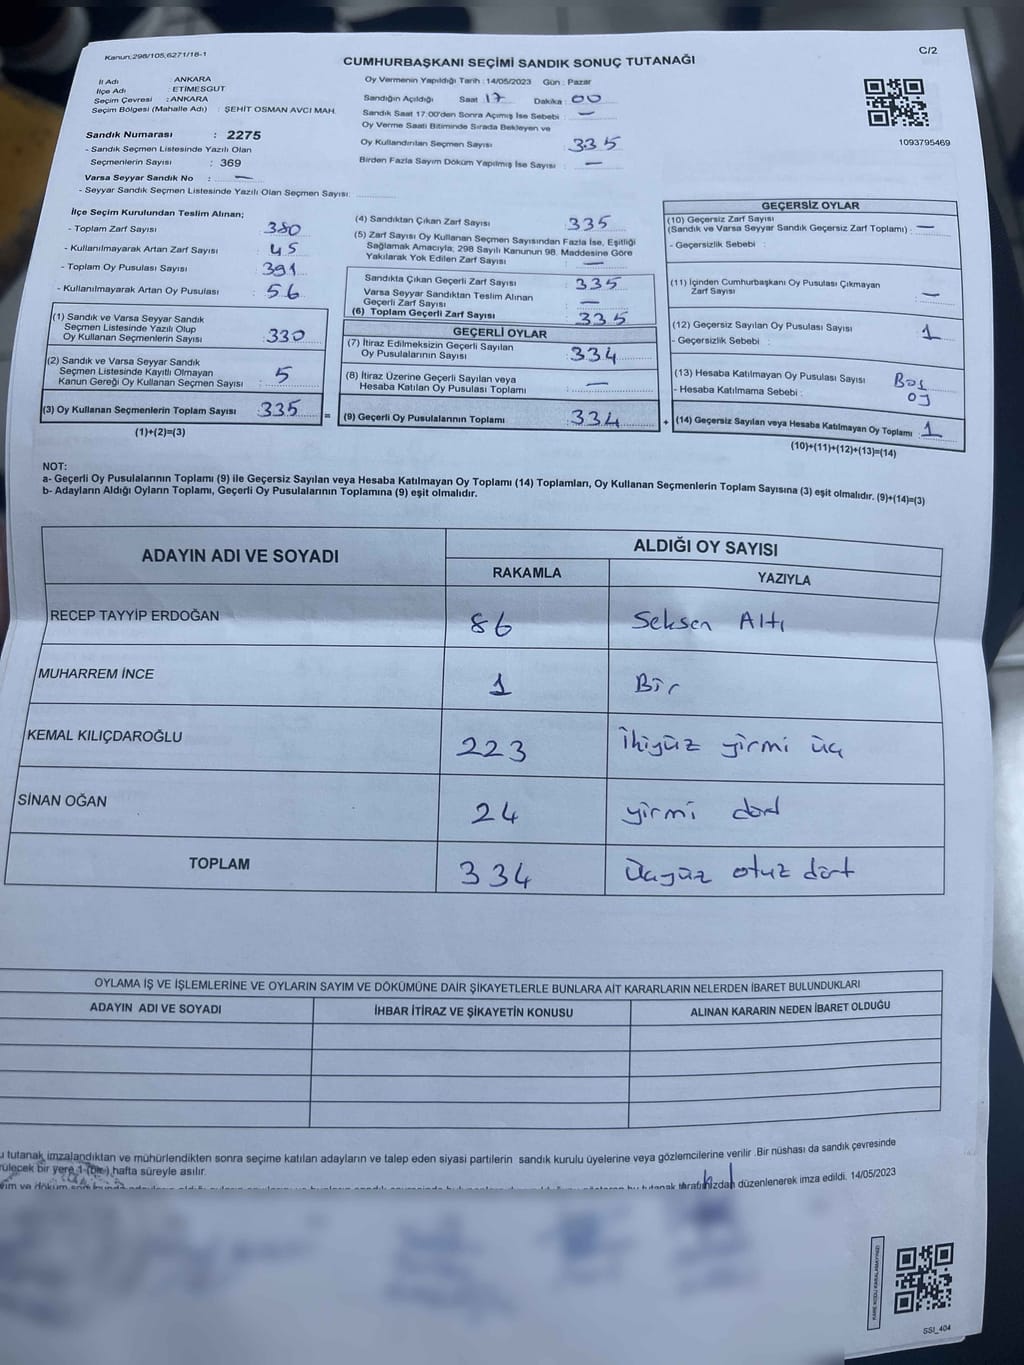 Kanun:298/105,6271/18-1
C/2
CUMHURBAŞKANI SEÇİMİ SANDIK SONUÇ TUTANAĞI
İl Adı : ANKARA
İlçe Adı : ETİMESGUT
Seçim Çevresi : ANKARA
Seçim Bölgesi (Mahalle Adı) : ŞEHİT OSMAN AVCI MAH.
Sandık Numarası : 2275
- Sandık Seçmen Listesinde Yazılı Olan
Seçmenlerin Sayısı : 369
Varsa Seyyar Sandık No : —
- Seyyar Sandık Seçmen Listesinde Yazılı Olan Seçmen Sayısı:
Oy Vermenin Yapıldığı Tarih : 14/05/2023 Gün : Pazar
Sandığın Açıldığı Saat 17 Dakika : 00
Sandık Saat 17.00'den Sonra Açımış İse Sebebi : —
Oy Verme Saati Bitiminde Sırada Bekleyen ve
Oy Kullandırılan Seçmen Sayısı : 335
Birden Fazla Sayım Döküm Yapılmış İse Sayısı : —
1093795469
İlçe Seçim Kurulundan Teslim Alınan;
- Toplam Zarf Sayısı : 380
- Kullanılmayarak Artan Zarf Sayısı : 45
- Toplam Oy Pusulası Sayısı : 391
- Kullanılmayarak Artan Oy Pusulası : 56
(1) Sandık ve Varsa Seyyar Sandık
Seçmen Listesinde Yazılı Olup
Oy Kullanan Seçmenlerin Sayısı : 330
(2) Sandık ve Varsa Seyyar Sandık
Seçmen Listesinde Kayıtlı Olmayan
Kanun Gereği Oy Kullanan Seçmen Sayısı : 5
(3) Oy Kullanan Seçmenlerin Toplam Sayısı : 335
(1)+(2)=(3)
=
(4) Sandıktan Çıkan Zarf Sayısı : 335
(5) Zarf Sayısı Oy Kullanan Seçmen Sayısından Fazla İse, Eşitliği
Sağlamak Amacıyla, 298 Sayılı Kanunun 98. Maddesine Göre
Yakılarak Yok Edilen Zarf Sayısı : —
Sandıkta Çıkan Geçerli Zarf Sayısı : 335
Varsa Seyyar Sandıktan Teslim Alınan
Geçerli Zarf Sayısı : —
(6) Toplam Geçerli Zarf Sayısı : 335
GEÇERLİ OYLAR
(7) İtiraz Edilmeksizin Geçerli Sayılan
Oy Pusulalarının Sayısı : 334
(8) İtiraz Üzerine Geçerli Sayılan veya
Hesaba Katılan Oy Pusulası Toplamı : —
(9) Geçerli Oy Pusulalarının Toplamı : 334
+
GEÇERSİZ OYLAR
(10) Geçersiz Zarf Sayısı
(Sandık ve Varsa Seyyar Sandık Geçersiz Zarf Toplamı) : —
- Geçersizlik Sebebi :
(11) İçinden Cumhurbaşkanı Oy Pusulası Çıkmayan
Zarf Sayısı : —
(12) Geçersiz Sayılan Oy Pusulası Sayısı : 1
- Geçersizlik Sebebi :
(13) Hesaba Katılmayan Oy Pusulası Sayısı : Boş
- Hesaba Katılmama Sebebi : oy
(14) Geçersiz Sayılan veya Hesaba Katılmayan Oy Toplamı : 1
(10)+(11)+(12)+(13)=(14)
NOT:
a- Geçerli Oy Pusulalarının Toplamı (9) ile Geçersiz Sayılan veya Hesaba Katılmayan Oy Toplamı (14) Toplamları, Oy Kullanan Seçmenlerin Toplam Sayısına (3) eşit olmalıdır. (9)+(14)=(3)
b- Adayların Aldığı Oyların Toplamı, Geçerli Oy Pusulalarının Toplamına (9) eşit olmalıdır.
ADAYIN ADI VE SOYADI
ALDIĞI OY SAYISI
RAKAMLA YAZIYLA
RECEP TAYYİP ERDOĞAN 86 Seksen Altı
MUHARREM İNCE 1 Bir
KEMAL KILIÇDAROĞLU 223 İkiyüz yirmi üç
SİNAN OĞAN 24 yirmi dört
TOPLAM 334 Üçyüz otuz dört
OYLAMA İŞ VE İŞLEMLERİNE VE OYLARIN SAYIM VE DÖKÜMÜNE DAİR ŞİKAYETLERLE BUNLARA AİT KARARLARIN NELERDEN İBARET BULUNDUKLARI
ADAYIN ADI VE SOYADI İHBAR İTİRAZ VE ŞİKAYETİN KONUSU ALINAN KARARIN NEDEN İBARET OLDUĞU
u tutanak imzalandıktan ve mühürlendikten sonra seçime katılan adayların ve talep eden siyasi partilerin sandık kurulu üyelerine veya gözlemcilerine verilir .Bir nüshası da sandık çevresinde
rülecek bir yere 1 (bir) hafta süreyle asılır.
bu tutanak tarafımızdan düzenlenerek imza edildi. 14/05/2023
SSI_404